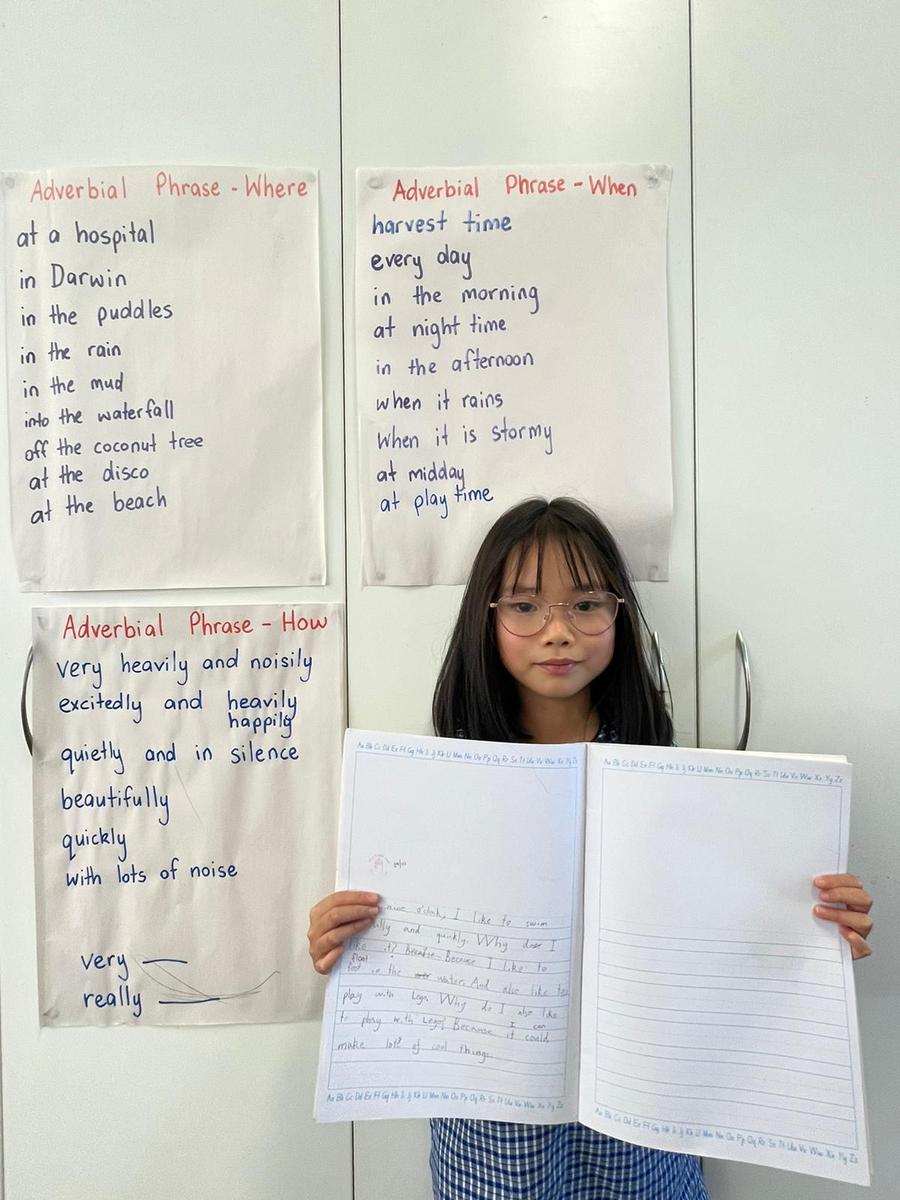 Adverbial Phrase - Where
at a hospital
in Darwin
in the puddles
in the rain
in the mud
into the waterfall
off the coconut tree
at the disco
at the beach
Adverbial Phrase - When
harvest time
every day
in the morning
at night time
in the afternoon
when it rains
when it is stormy
at midday
at play time
Adverbial Phrase - How
very heavily and noisily
excitedly and heavily
happily
quietly and in silence
beautifully
quickly
with lots of noise
very
really
Aa Bb Cc Dd Ee Ff Gg Hh Ii Jj Kk Ll Mm Nn Oo Pp Qq Rr Ss Tt Uu Vv Ww Xx Yy Zz
o'clock, I like to swim
and quickly. Why dose I
like it? Because I like to
float
in the water. And also like to
play with Lego. Why do I also like
to play with Lego? Because I can
it could
make lots of cool things.
Aa Bb Cc Dd Ee Ff Gg Hh Ii Jj Kk Ll Mm Nn Oo Pp Qq Rr Ss Tt Uu Vv Ww Xx Yy Zz
Aa Bb Cc Dd Ee Ff Gg Hh Ii Jj Kk Ll Mm Nn Oo Pp Qq Rr Ss Tt Uu Vv Ww Xx Yy Zz
Aa Bb Cc Dd Ee Ff Gg Hh Ii Jj Kk Ll Mm Nn Oo Pp Qq Rr Ss Tt Uu Vv Ww Xx Yy Zz